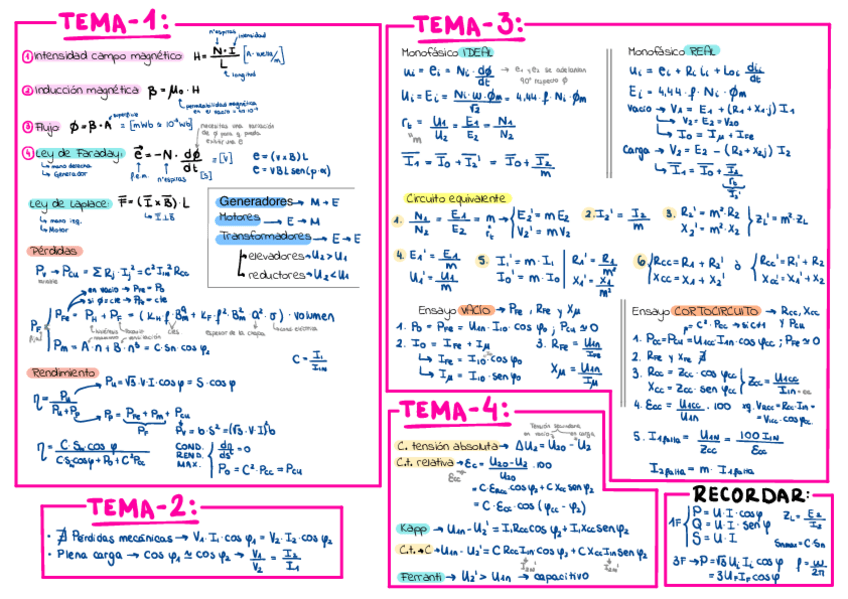 TEMA-1:
nºespiras
intensidad
① Intensidad campo magnético H = N·I / L [A·vuelta/m]
longitud
② Inducción magnética B = μ₀·H
permeabilidad magnética
③ Flujo φ = B·A → [mWb ≈ 10⁻³ Wb]
superficie
necesitas una variación de φ para q pueda existir una e
④ Ley de Faraday: e = -N·dφ/dt = [V]
e = (v x B) L
↳ mano derecha
↳ Generador
f.e.m.
nºespiras
[s]
Ley de Laplace: F = (I x B)·L
↳ mano izq.
↳ Motor
↳ I⊥B
Generadores → M → E
Motores → E → M
Transformadores → E → E
↳ elevadores → U₂ > U₁
↳ reductores → U₂ < U₁
Pérdidas
Pv → Pcu = Σ Rj·Ij² = C²I₁n²Rcc
→ en vacío → PFe = P₀
→ si φ = cte → P₀ = cte
PF
PFe = PH + PF = (kH·f·Bm² + kF·f²·Bm²·a²·σ)·volumen
espesor de la chapa
Pm = A·n + B·n³ = C·Sn·cosφ₂
C = I₁/I₁n
Rendimiento
Pu = √3·V·I·cosφ = S·cosφ
η = Pu / Pu+Pp
Pp = PFe + Pm + Pcu
PF
η = C Sn cosφ / C Sn cosφ + P₀ + C²Pcc
COND. REND. MAX.
dη/ds = 0
P₀ = C²·Pcc = Pcu
TEMA-2:
• ∄ Pérdidas mecánicas → V₁·I₁·cosφ₁ = V₂·I₂·cosφ₂
• Plena carga → cosφ₁ ≃ cosφ₂ → V₁/V₂ = I₂/I₁
TEMA-3:
Monofásico IDEAL
ui = ei = Ni·dφ/dt → e₁ y e₂ se adelantan 90º respecto φ
Ui = Ei = Ni·ω·φm/√2 = 4,44·f·Ni·φm
rt = U₁/U₂ = E₁/E₂ = N₁/N₂
m
I₁ = I₀ + I₂' = I₀ + I₂/m
Monofásico REAL
ui = ei + Ri ii + Lσi dii/dt
Ei = 4,44·f·Ni·φm
Vacío → V₁ = E₁ + (R₁+X₁j) I₁
↳ V₂ = E₂ = V₂₀
↳ I₀ = Iμ + IFe
Carga → V₂ = E₂ - (R₂+X₂j) I₂
↳ I₁ = I₀ + I₂/rt
I₂'
Circuito equivalente
1. N₁/N₂ = E₁/E₂ = m → E₂' = m E₂
V₂' = m V₂
2. I₂' = I₂/m
3. R₂' = m²·R₂
X₂' = m²·X₂
ZL' = m²·ZL
4. E₁' = E₁/m
U₁' = U₁/m
5. I₁' = m·I₁
I₀' = m·I₀
R₁' = R₁/m²
X₁' = X₁/m²
6. Rcc = R₁ + R₂'
Xcc = X₁ + X₂'
ò
Rcc' = R₁' + R₂
Xcc' = X₁' + X₂
Ensayo VACÍO → PFe, RFe y Xμ
1. P₀ = PFe = U₁n·I₁₀·cosφ₀; Pcu ≃ 0
2. I₀ = IFe + Iμ
↳ IFe = I₁₀·cosφ₀
↳ Iμ = I₁₀·senφ₀
3. RFe = U₁n/IFe
Xμ = U₁n/Iμ
Ensayo CORTOCIRCUITO → Rcc, Xcc y Pcu
1. Pcc = Pcu = U₁cc I₁n·cosφcc; PFe ≃ 0
2. RFe y XFe ∄
3. Rcc = Zcc·cosφcc
Xcc = Zcc·senφcc
Zcc = U₁cc/I₁n
4. Ecc = U₁cc/U₁n·100
5. I₁falla = U₁n/Zcc = 100 I₁n/Ecc
I₂falla = m·I₁falla
TEMA-4:
Tensión secundaria
en vacío
en carga
C. tensión absoluta → ΔU₂ = U₂₀ - U₂
C.t. relativa → Ec = U₂₀-U₂/U₂₀·100
= C·ERcc cosφ₂ + C Xcc senφ₂
= C·Ecc·cos(φcc - φ₂)
Kapp → U₁n - U₂' = I₁Rcc cosφ₂ + I₁Xcc senφ₂
C.t. → C → U₁n - U₂' = C Rcc I₁n cosφ₂ + C Xcc I₁n senφ₂
I₂n'
I₂n'
Ferranti → U₂' > U₁n → capacitivo
RECORDAR:
1F
P = U·I·cosφ
Q = U·I·senφ
S = U·I
ZL = E₂/I₂
3F → P = √3 UL IL cosφ
= 3UF IF cosφ
f = ω/2π